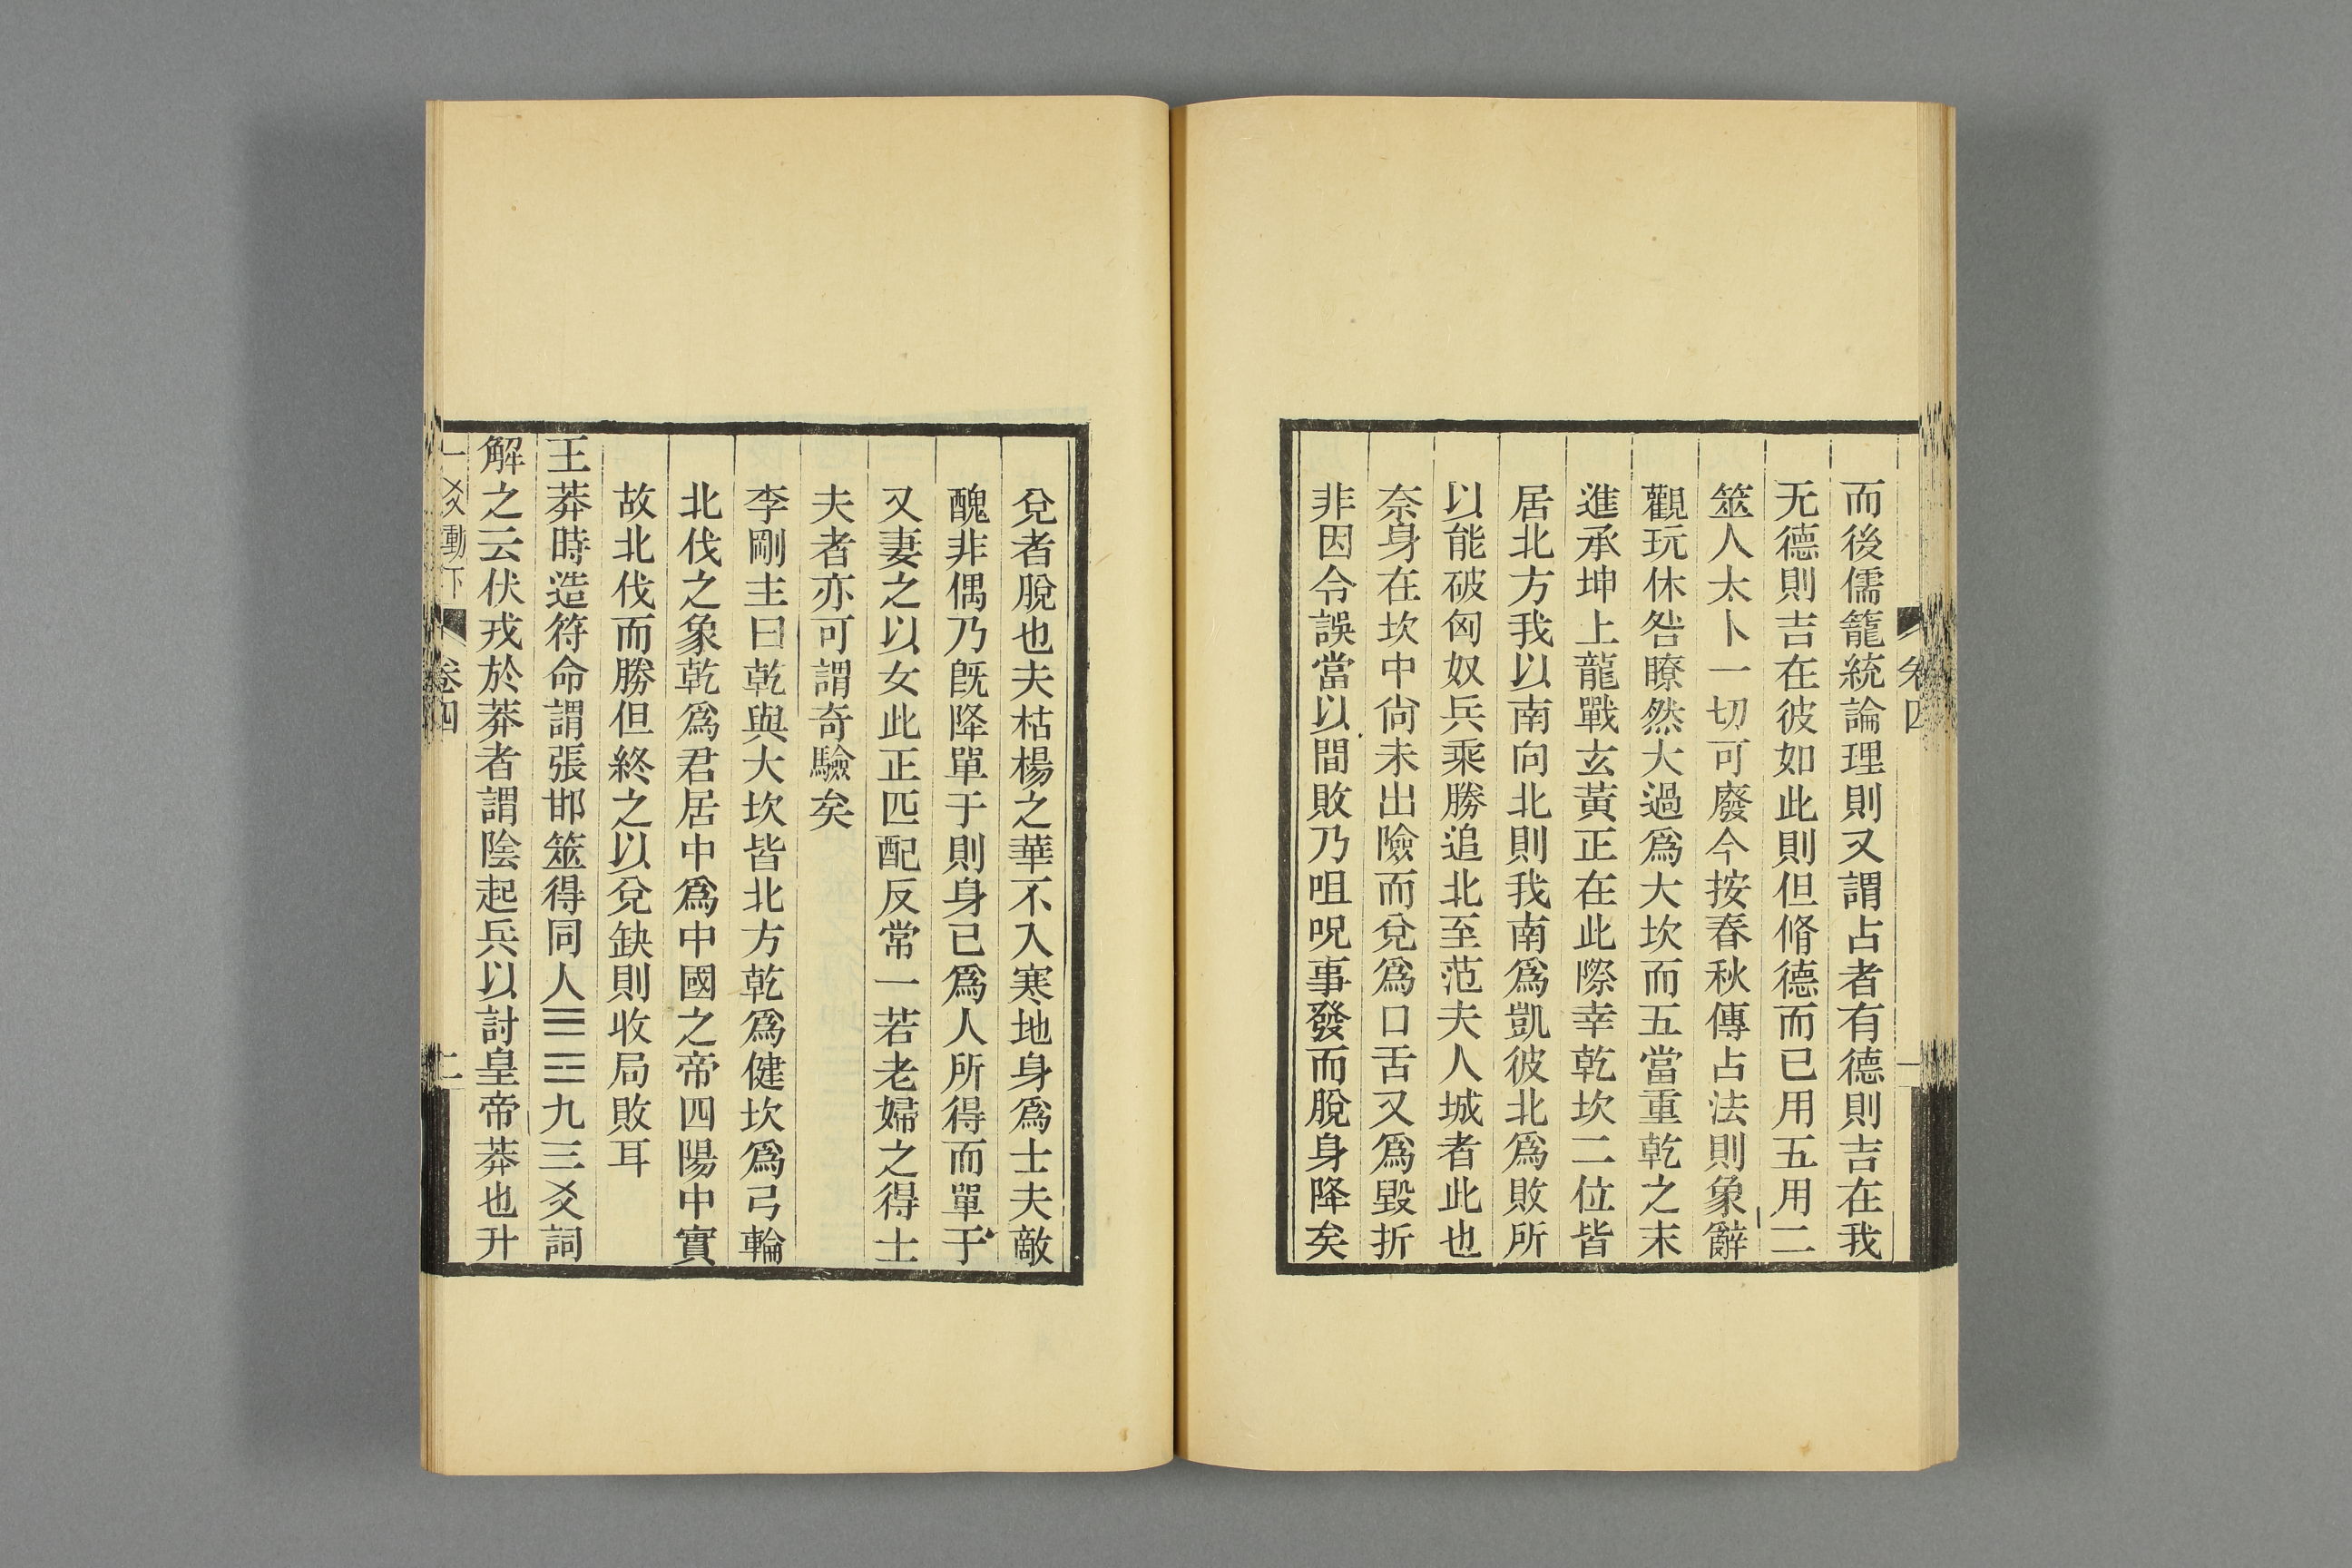 而後儒籠統論理則又謂占者有德則吉在我
无德則吉在彼如此則但脩德而已用五用二
筮人太卜一切可廢今按春秋傳占法則象辭
觀玩休咎瞭然大過爲大坎而五當重乾之末
進承坤上龍戰玄黃正在此際幸乾坎二位皆
居北方我以南向北則我南爲凱彼北爲敗所
以能破匈奴兵乘勝追北至范夫人城者此也
奈身在坎中尙未出險而兌爲口舌又爲毀折
非因令誤當以間敗乃咀呪事發而脫身降矣
兌者脫也夫枯楊之華不入寒地身爲士夫敵
醜非偶乃旣降單于則身已爲人所得而單于
又妻之以女此正匹配反常一若老婦之得士
夫者亦可謂奇驗矣
李剛主曰乾與大坎皆北方乾爲健坎爲弓輪
北伐之象乾爲君居中爲中國之帝四陽中實
故北伐而勝但終之以兌缺則收局敗耳
王莽時造符命謂張邯筮得同人☰☲九三爻詞
解之云伏戎於莽者謂陰起兵以討皇帝莽也升
一爻動下 卷四 二